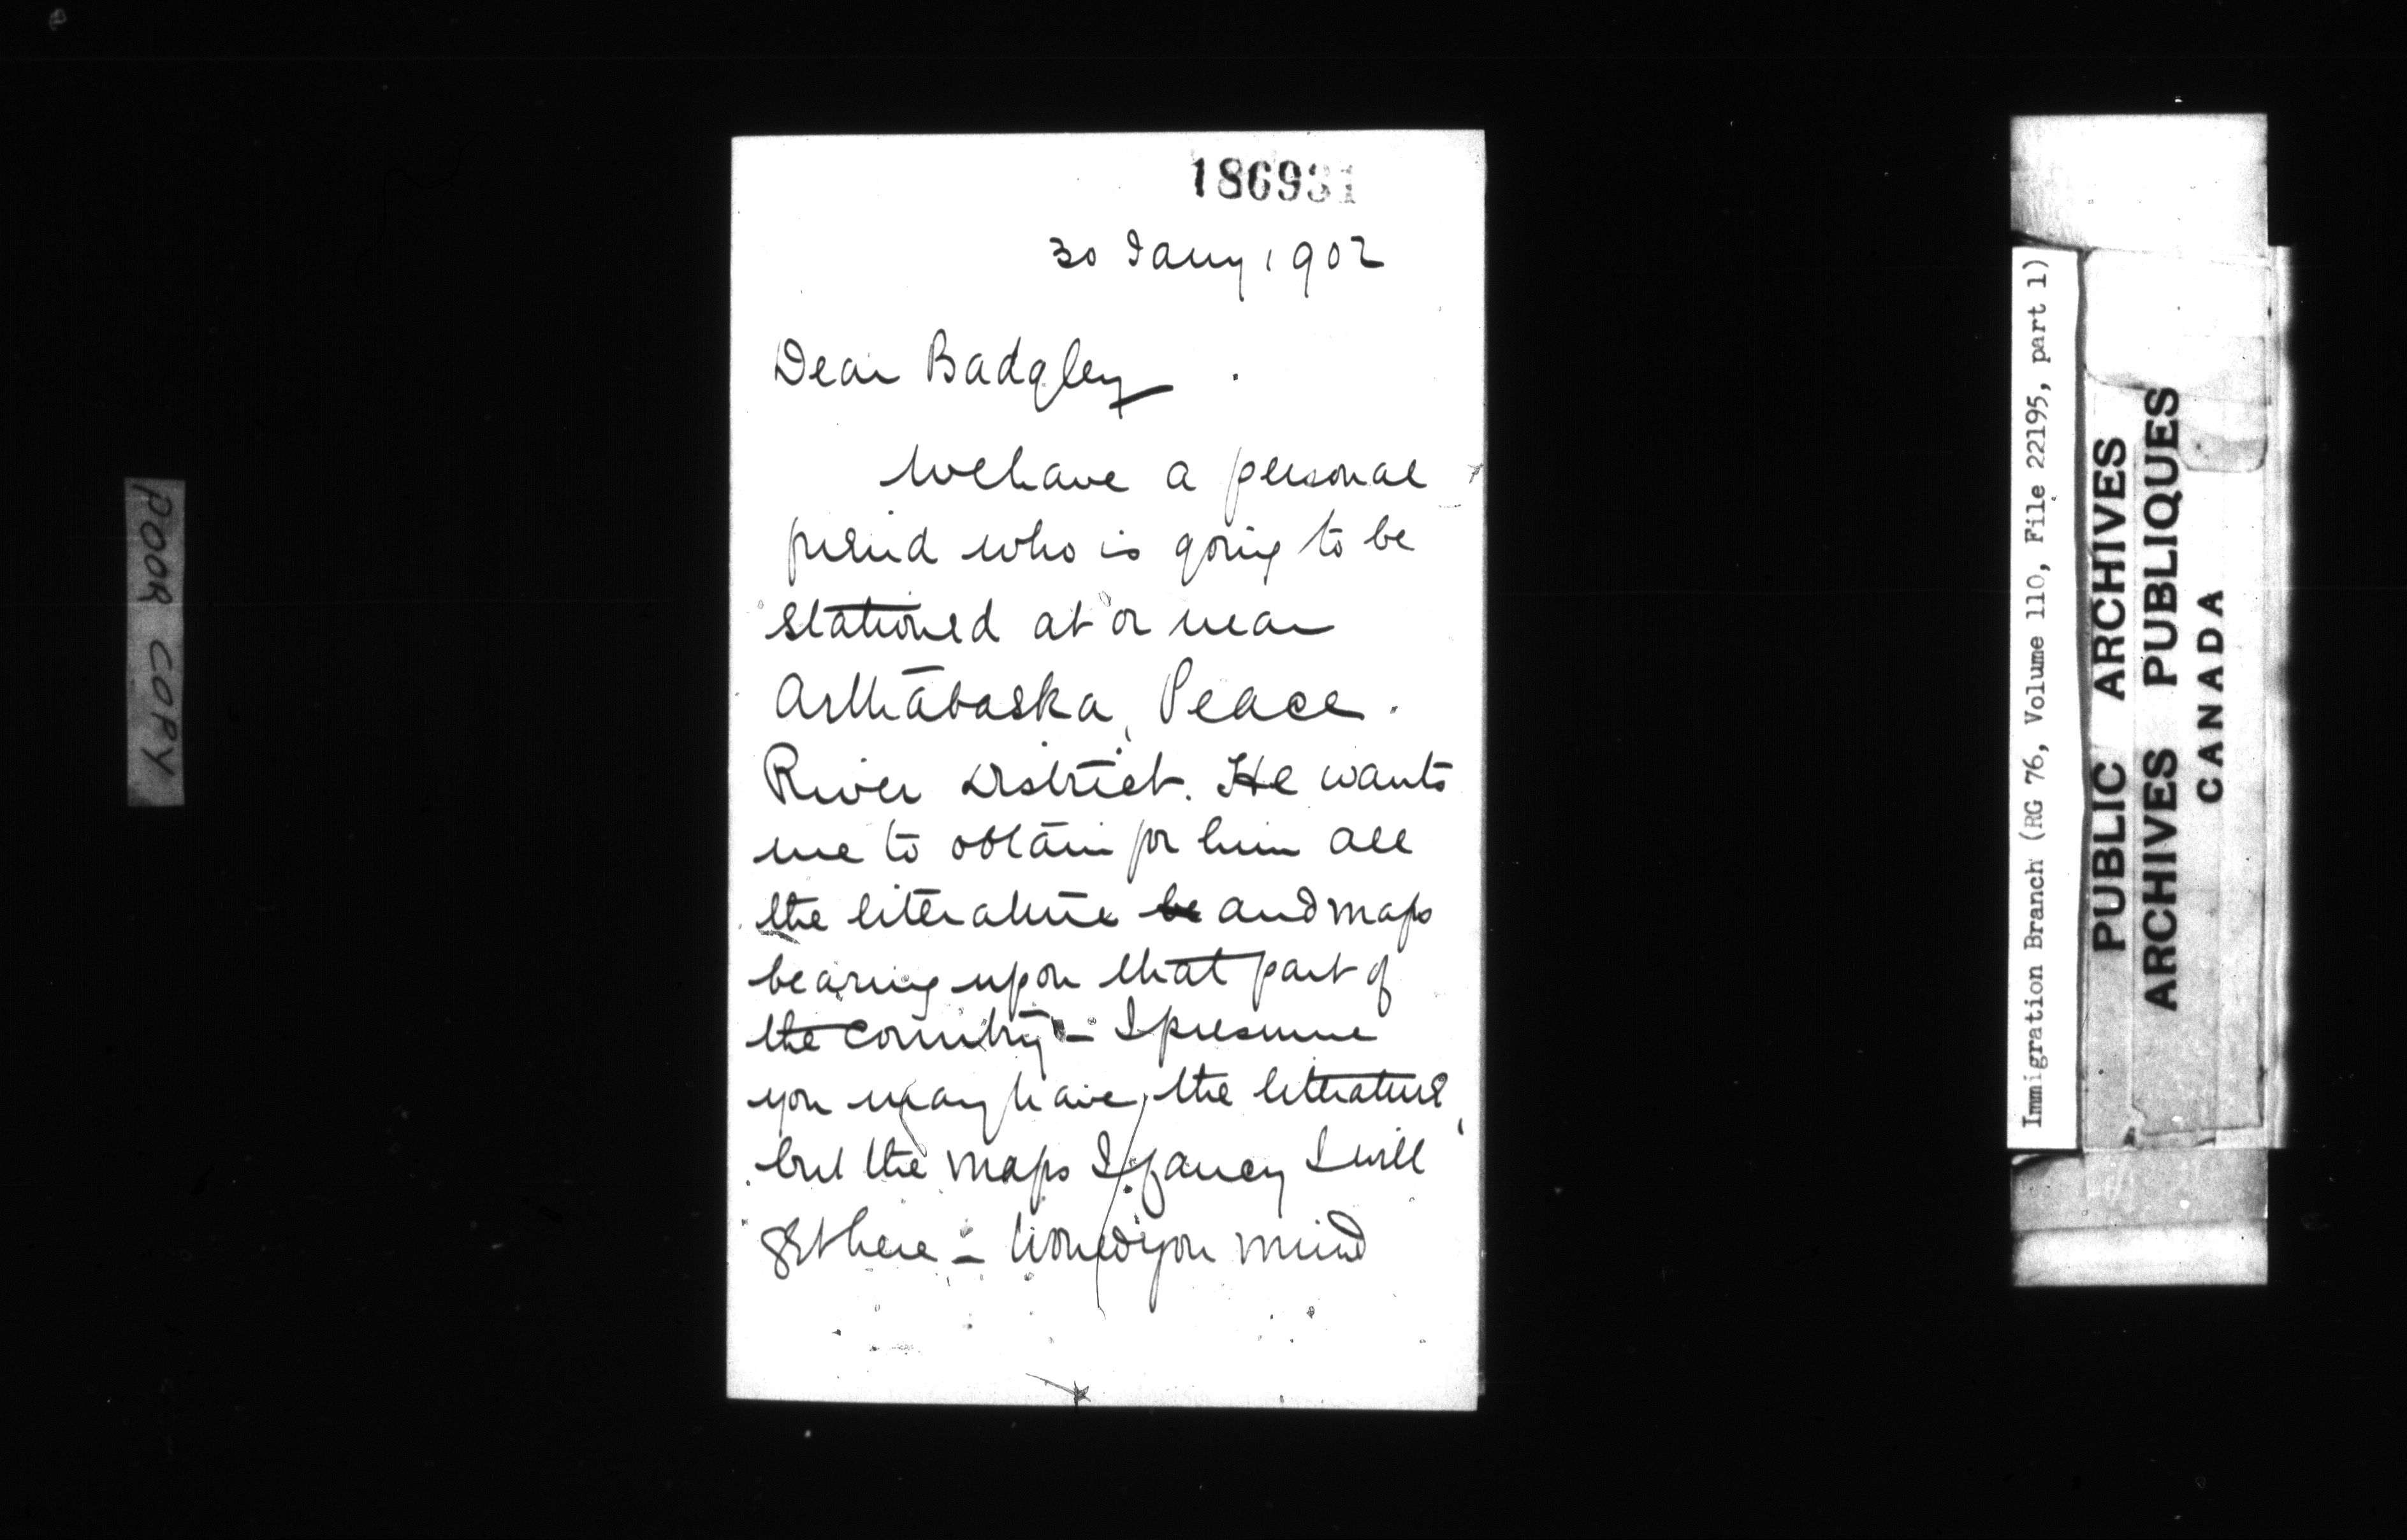 POOR COPY
186931
30 Jany 1902
Dear Badgley
We have a personal
friend who is going to be
stationed at or near
Arthabaska, Peace
River District. He wants
me to obtain for him all
the literature be and maps
bearing upon that part of
the country - I presume
you may have, the literature,
but the maps I fancy I will
get here - Would you mind
Immigration Branch (RG 76, Volume 110, File 22195, part 1)
PUBLIC ARCHIVES
ARCHIVES PUBLIQUES
CANADA